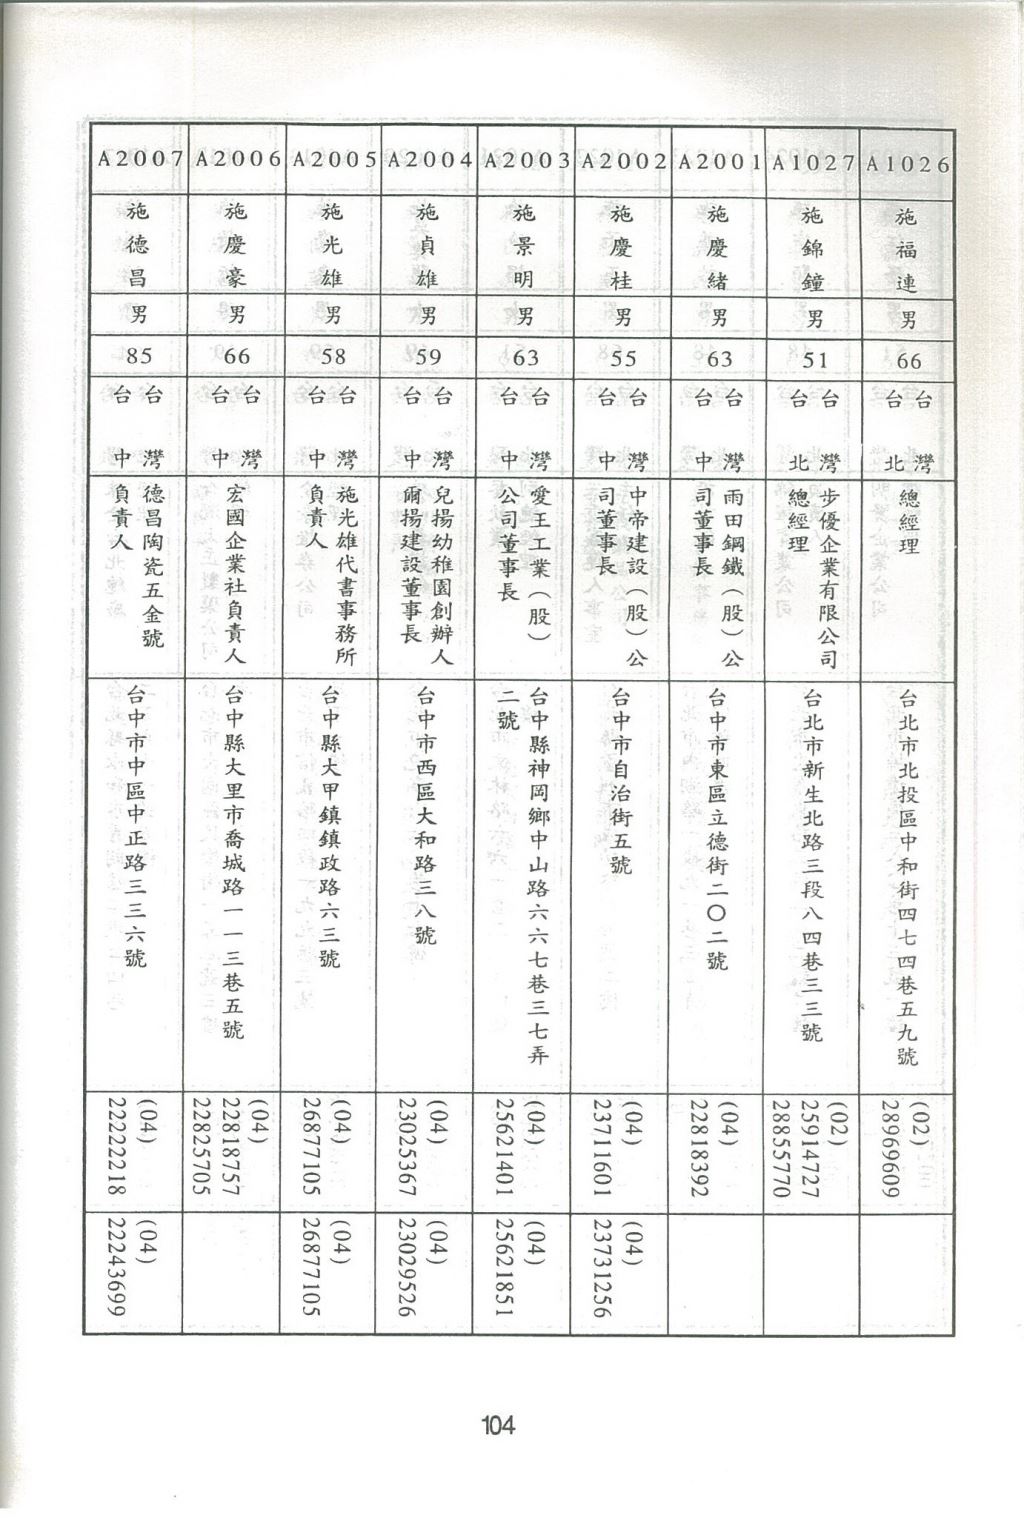 A1026
施福連
男
66
台灣
台北
總經理
台北市北投區中和街四七四巷五九號
(02)
28969609
A1027
施錦鐘
男
51
台灣
台北
步優企業有限公司
總經理
台北市新生北路三段八四巷三三號
(02)
25914727
28855770
A2001
施慶緒
男
63
台灣
台中
雨田鋼鐵（股）公
司董事長
台中市東區立德街二〇二號
(04)
22818392
A2002
施慶桂
男
55
台灣
台中
中帝建設（股）公
司董事長
台中市自治街五號
(04)
23711601
(04)
23731256
A2003
施景明
男
63
台灣
台中
愛王工業（股）
公司董事長
台中縣神岡鄉中山路六六七巷三七弄
二號
(04)
25621401
(04)
25621851
A2004
施貞雄
男
59
台灣
台中
兒揚幼稚園創辦人
爾揚建設董事長
台中市西區大和路三八號
(04)
23025367
(04)
23029526
A2005
施光雄
男
58
台灣
台中
施光雄代書事務所
負責人
台中縣大甲鎮鎮政路六三號
(04)
26877105
(04)
26877105
A2006
施慶豪
男
66
台灣
台中
宏國企業社負責人
台中縣大里市喬城路一一三巷五號
(04)
22818757
22825705
A2007
施德昌
男
85
台灣
台中
德昌陶瓷五金號
負責人
台中市中區中正路三三六號
(04)
22222218
(04)
22243699
104